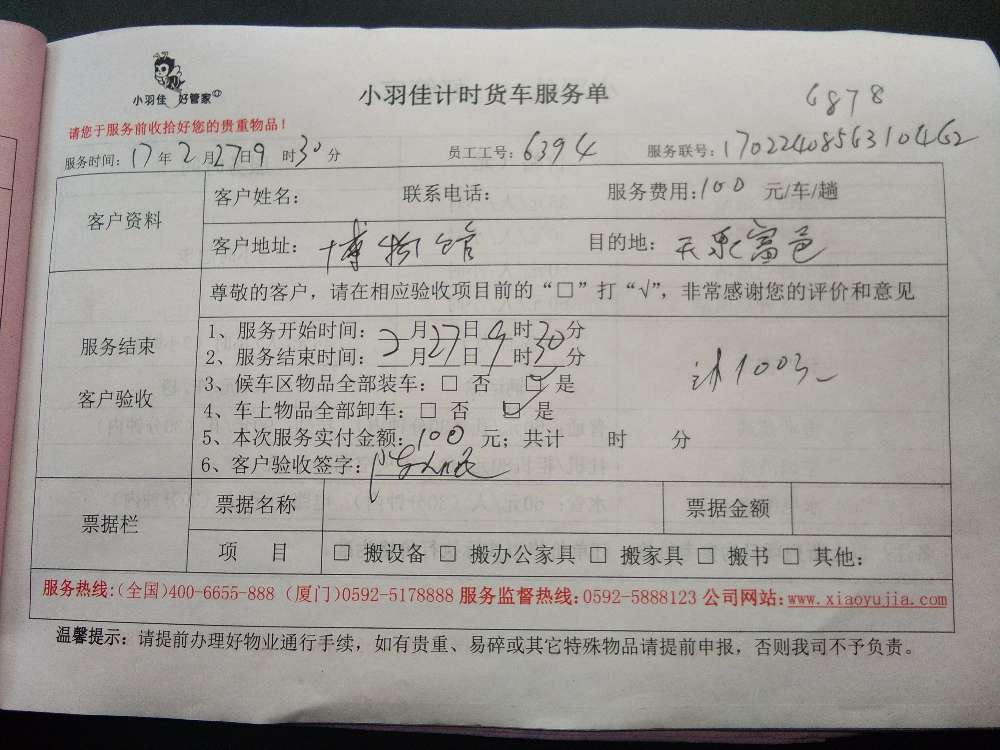 小羽佳 好管家
小羽佳计时货车服务单
6878
请您于服务前收拾好您的贵重物品！
服务时间：17年2月27日9时30分 员工工号：6394 服务联号：1702240856310462
客户资料
客户姓名： 联系电话： 服务费用：100 元/车/趟
客户地址：博物馆 目的地：天泉富邑
服务结束
客户验收
尊敬的客户，请在相应验收项目前的“□”打“√”，非常感谢您的评价和意见
1、服务开始时间：2月27日9时30分
2、服务结束时间：2月27日9时30分
3、候车区物品全部装车：□ 否 ☑ 是
4、车上物品全部卸车：□ 否 ☑ 是
5、本次服务实付金额：100 元；共计 时 分
6、客户验收签字：
计100元
票据栏
票据名称 票据金额
项 目 □ 搬设备 □ 搬办公家具 □ 搬家具 □ 搬书 □ 其他：
服务热线：(全国)400-6655-888 (厦门)0592-5178888 服务监督热线：0592-5888123 公司网站：www.xiaoyujia.com
温馨提示：请提前办理好物业通行手续，如有贵重、易碎或其它特殊物品请提前申报，否则我司不予负责。